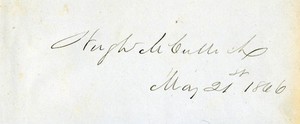 Hugh McCulloch
May 21st 1866